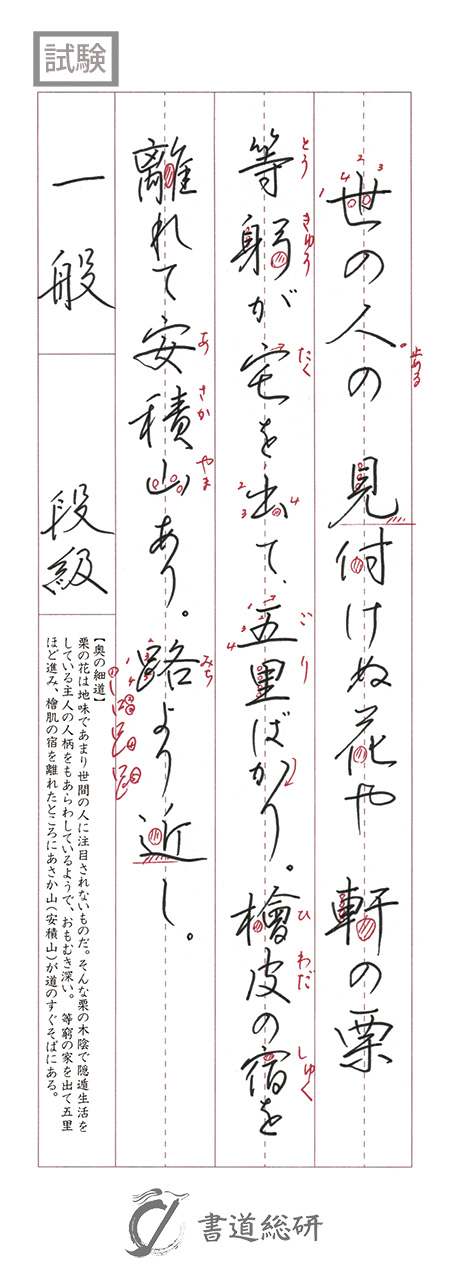 試験
世の人の見付けぬ花や軒の栗
止める
等躬が宅を出て、五里ばかり。檜皮の宿を
とう きゅう たく ごり ひわだ しゅく
離れて安積山あり。路より近し。
あ さか やま みち
一般
段級
【奥の細道】
栗の花は地味であまり世間の人に注目されないものだ。そんな栗の木陰で隠遁生活を
している主人の人柄をもあらわしているようで、おもむき深い。 等窮の家を出て五里
ほど進み、檜肌の宿を離れたところにあさか山(安積山)が道のすぐそばにある。
書道総研